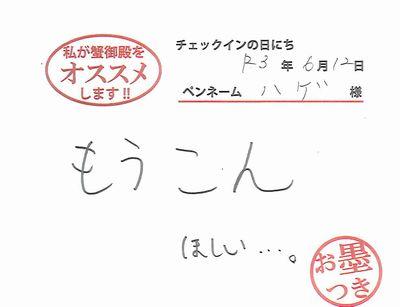 私が蟹御殿を
オススメ
します!!
チェックインの日にち
R3年6月12日
ペンネーム ハゲ 様
もうこん
ほしい…。
お墨
つき